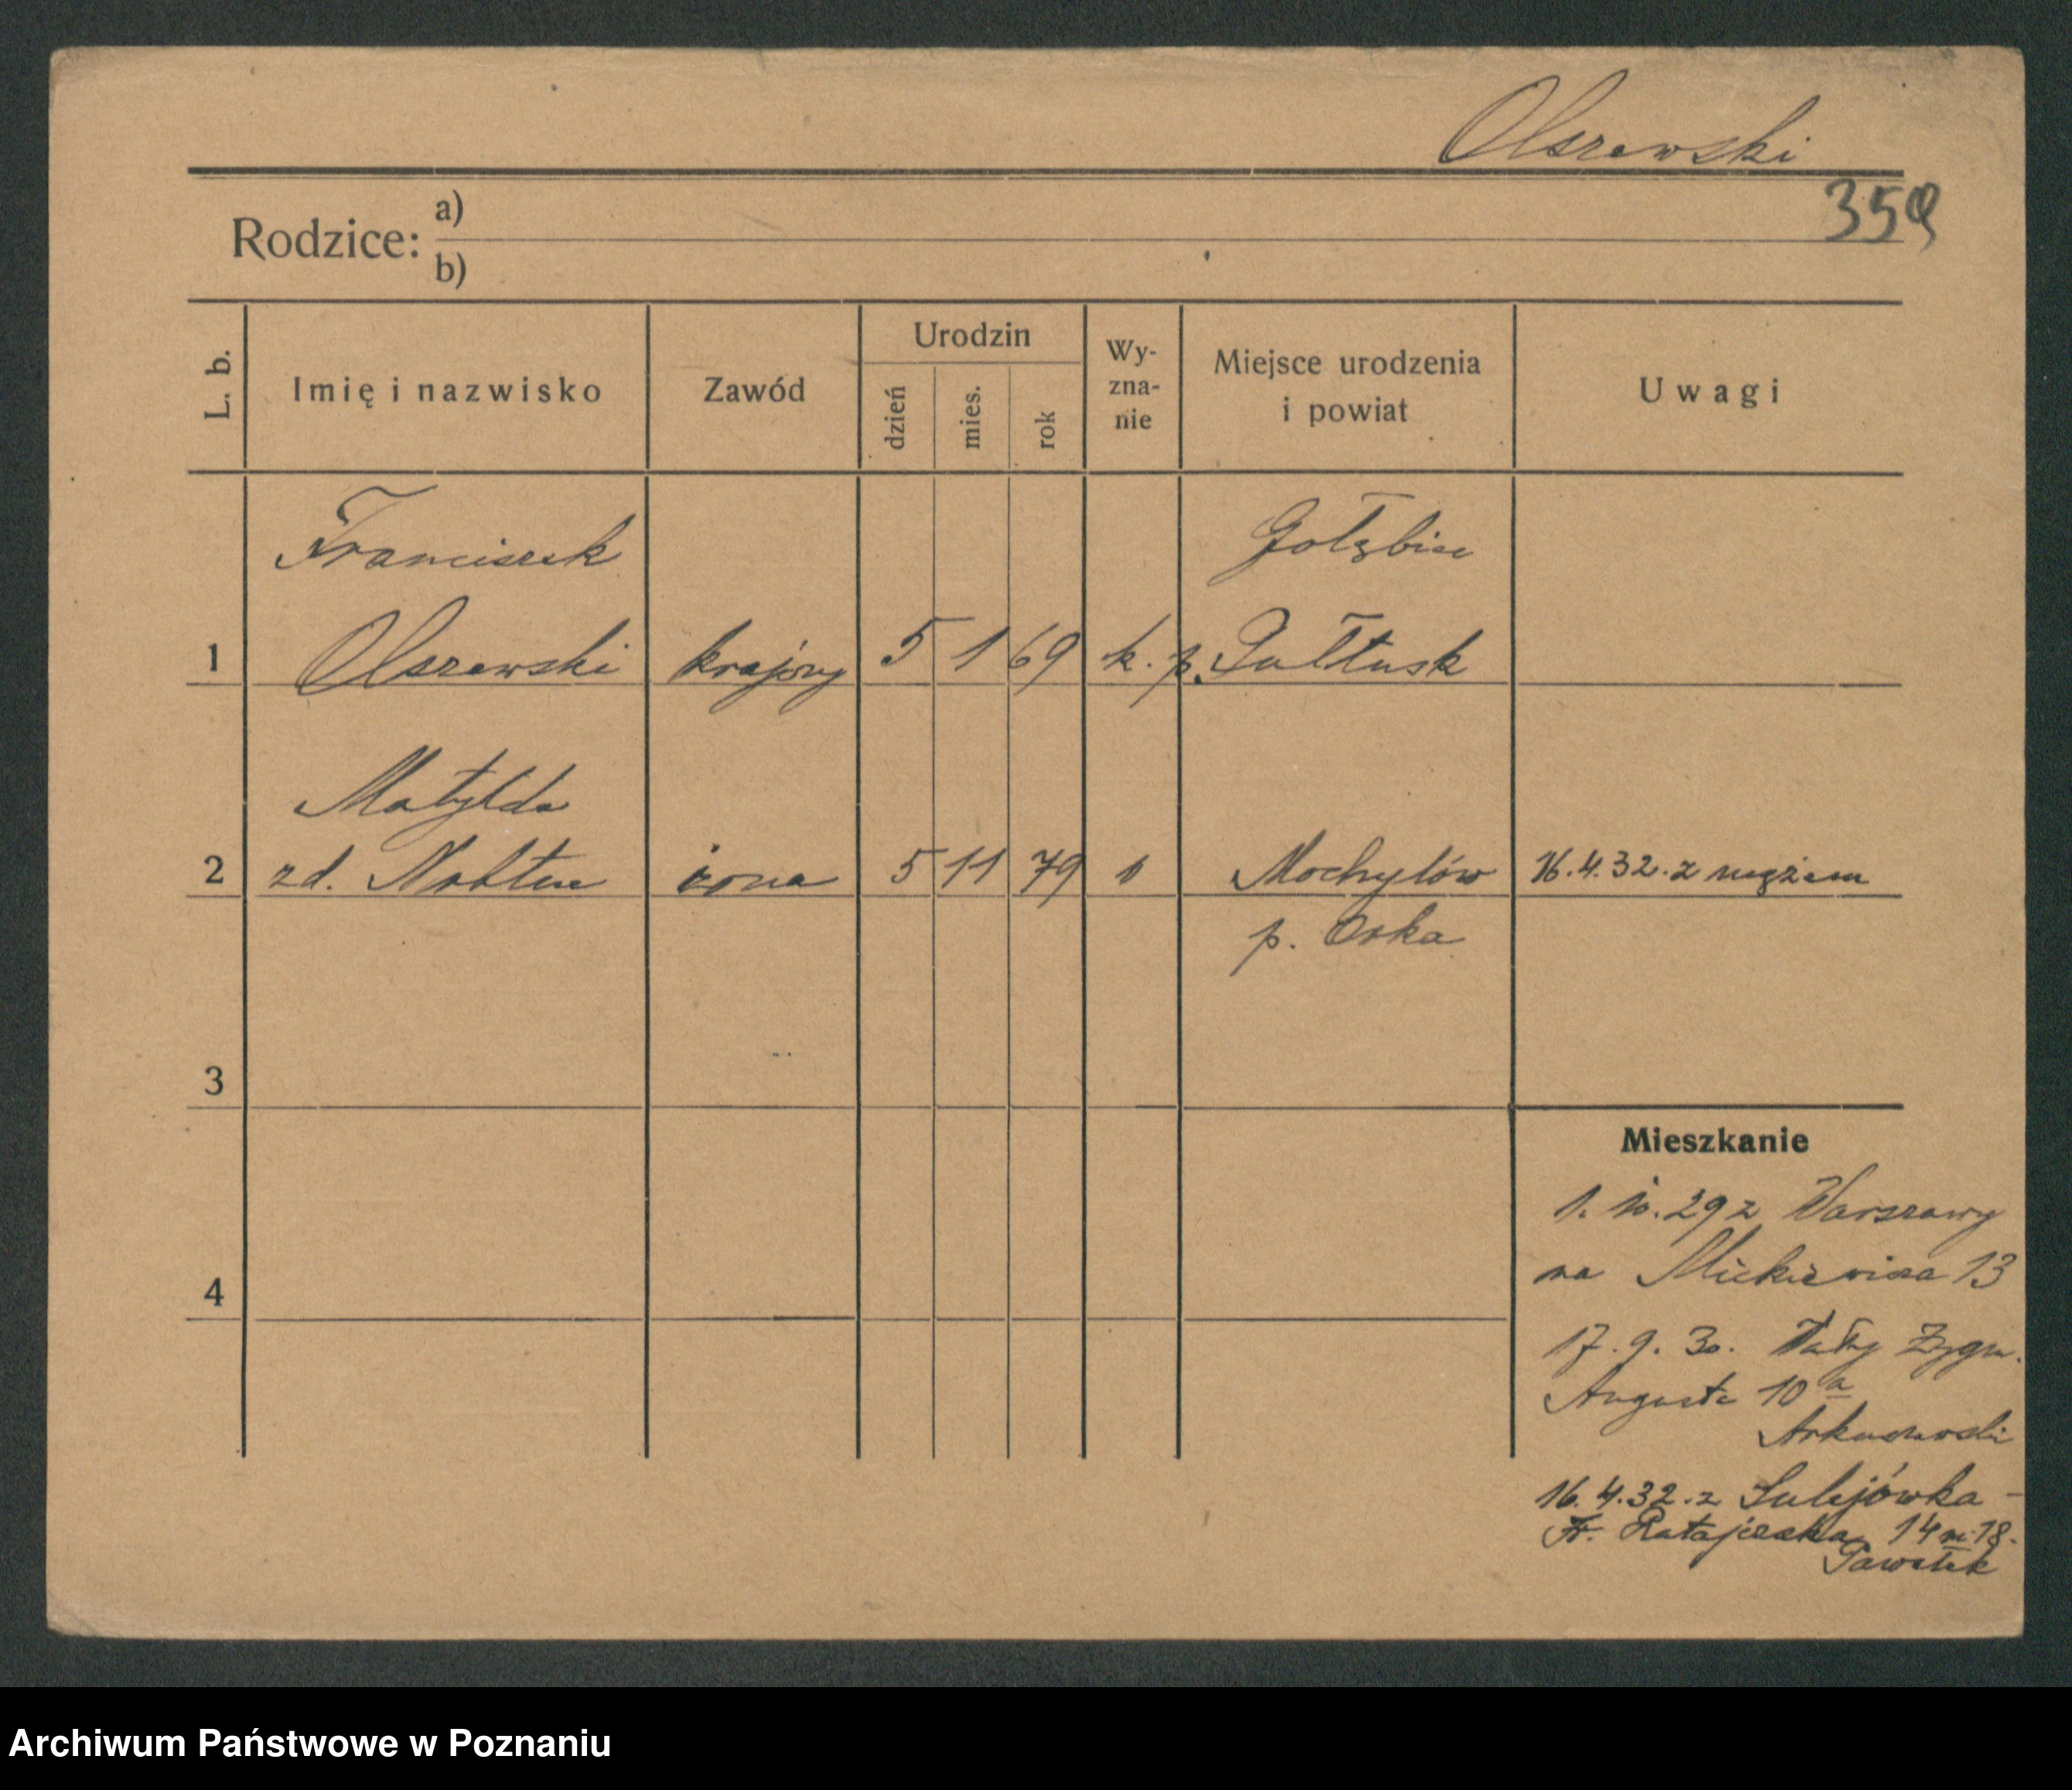 Olszewski
359
Rodzice: a)
b)
L. b.
Imię i nazwisko
Zawód
Urodzin
dzień
mies.
rok
Wy-
zna-
nie
Miejsce urodzenia
i powiat
Uwagi
Franciszek Gołębice
1 Olszewski krojczy 5 1 69 k. p. Pułtusk
Matylda
2 zd. żona 5 11 79 Mochylów 16.4.32. z mężem
p. Orka
3
Mieszkanie
1. 10. 29 z Warszawy
na Mickiewicza 13
4
17. 9. 30. Wały Zygm.
Augusta 10 a
16. 4. 32. z Sulejówka -
Fr. Ratajczaka 14 m. 18.
Pawełek
Archiwum Państwowe w Poznaniu